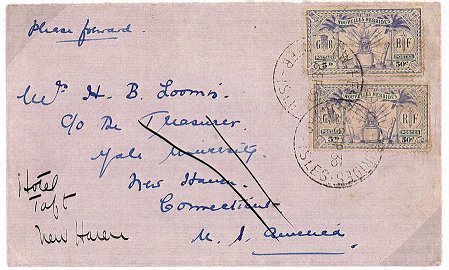 Please forward.
Mr H. B. Loomis
c/o The Treasurer,
Yale University
New Haven
Connecticut
U. S. America
Hotel
Taft
New Haven
NOUVELLES HEBRIDES
G R R F
POSTES
5D 50c
NOUVELLES HEBRIDES
G R R F
POSTES
5D 50c